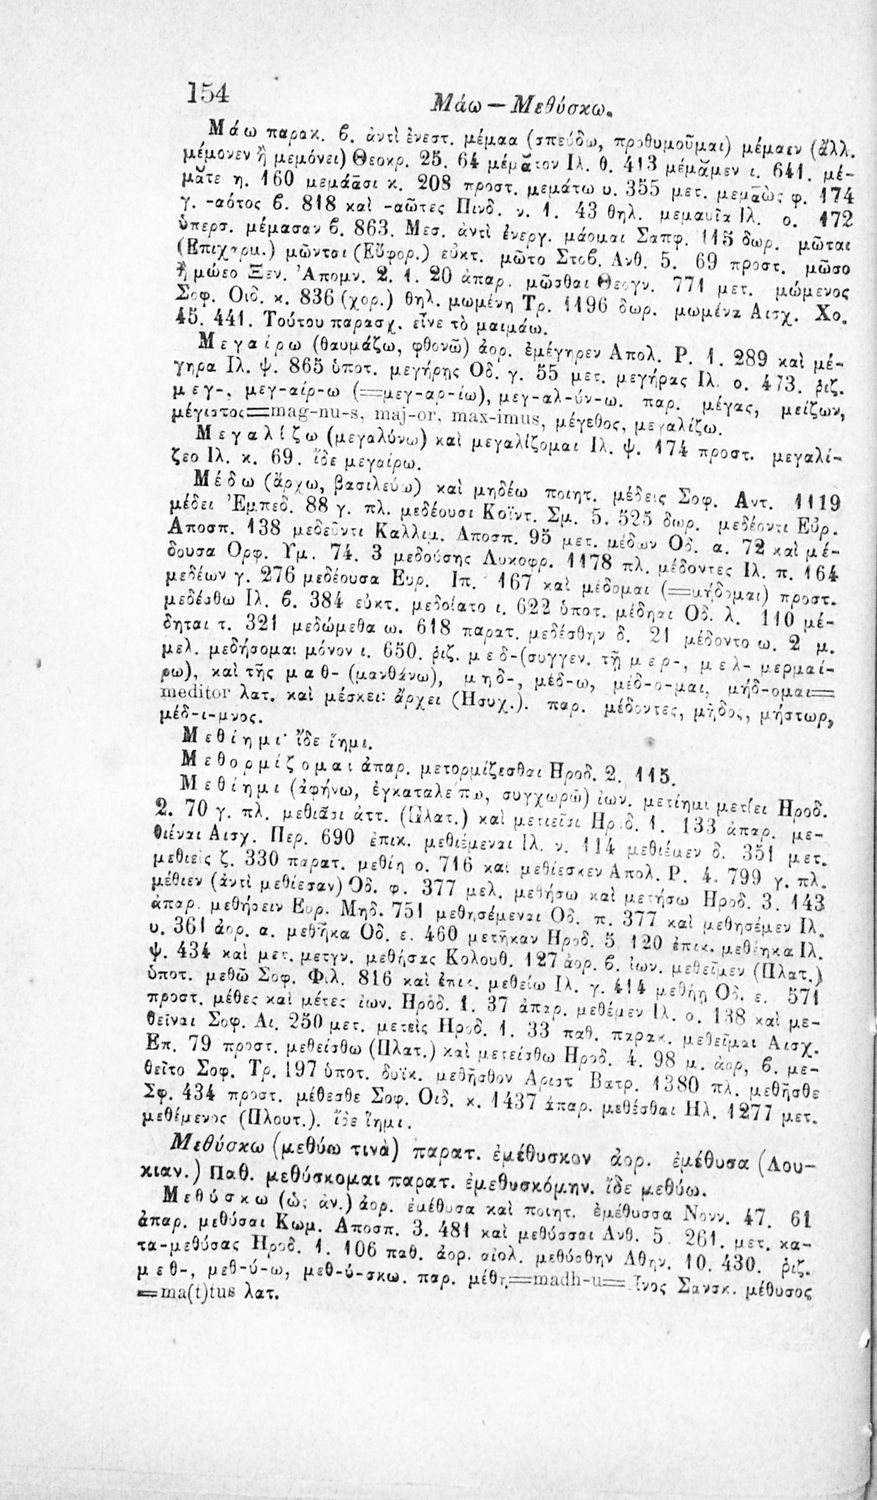 154
Μάω — Μεθύσκω.
Μάω παρακ. β. ἀντὶ ἐνεστ. μέμαα (σπεύδω, προθυμοῦμαι) μέμαεν (ἄλλ.
μέμονεν ἢ μεμόνει) Θεοκρ. 25. 64 μέμᾰτον Ιλ. θ. 413 μέμᾰμεν ι. 641. μέ-
μᾰτε η. 160 μεμάᾱσι κ. 208 προστ. μεμάτω υ. 355 μετ. μεμᾱὼς φ. 174
γ. -αότος β. 818 καὶ -αῶτες Πινδ. ν. 1. 43 θηλ. μεμαυῖα Ιλ. ο. 172
ὑπερσ. μέμασαν β. 863. Μεσ. ἀντὶ ἐνεργ. μάομαι Σαπφ. 115 δωρ. μῶται
(Επιχαρμ.) μῶνται (Εὔφορ.) εὐκτ. μῶτο Στοβ. Ανθ. 5. 69 προστ. μῶσο
ἢ μώεο Ξεν. Ἀπομν. 2. 1. 20 ἀπαρ. μῶσθαι Θεογν. 771 μετ. μώμενος
Σοφ. Οιδ. κ. 836 (χορ.) θηλ. μωμένη Τρ. 1196 δωρ. μωμένα Αισχ. Χο.
45. 441. Τούτου παρασχ. εἶνε τὸ μαιμάω.
Μεγαίρω (θαυμάζω, φθονῶ) ἀορ. ἐμέγηρεν Απολ. Ρ. 1. 289 καὶ μέ-
γηρα Ιλ. ψ. 865 ὑποτ. μεγήρῃς Οδ. γ. 55 μετ. μεγήρας Ιλ. ο. 473. ῥιζ.
μεγ-, μεγ-αίρ-ω (=μεγ-αρ-ίω), μεγ-αλ-ύν-ω. παρ. μέγας, μείζων,
μέγιστος=mag-nu-s, maj-or, max-imus, μέγεθος, μεγαλίζω.
Μεγαλίζω (μεγαλύνω) καὶ μεγαλίζομαι Ιλ. ψ. 174 προστ. μεγαλί-
ζεο Ιλ. κ. 69. ἴδε μεγαίρω.
Μέδω (ἄρχω, βασιλεύω) καὶ μηδέω ποιητ. μέδεις Σοφ. Αντ. 1119
μέδει Ἐμπεδ. 88 γ. πλ. μεδέουσι Κοΐντ. Σμ. 5. 525 δωρ. μεδέοντι Εὐρ.
Αποσπ. 138 μεδεῦντι Καλλιμ. Αποσπ. 95 μετ. μέδων Οδ. α. 72 καὶ μέ-
δουσα Ορφ. Υμ. 74. 3 μεδούσης Λυκοφρ. 1178 πλ. μέδοντες Ιλ. π. 164
μεδέων γ. 276 μεδέουσα Ευρ. Ιπ. 167 καὶ μέδομαι (=μήδομαι) προστ.
μεδέσθω Ιλ. β. 384 εὐκτ. μεδοίατο ι. 622 ὑποτ. μέδηαι Οδ. λ. 110 μέ-
δηται τ. 321 μεδώμεθα ω. 618 παρατ. μεδέσθην δ. 21 μέδοντο ω. 2 μ.
μελ. μεδήσομαι μόνον ι. 650. ῥιζ. μεδ-(συγγεν. τῇ μερ-, μελ- μερμαί-
ρω), καὶ τῆς μαθ- (μανθάνω), μηδ-, μέδ-ω, μέδ-ο-μαι, μήδ-ομαι=
meditor λατ. καὶ μέσκει· ἄρχει (Ησυχ.). παρ. μέδοντες, μῆδος, μήστωρ,
μέδ-ι-μνος.
Μεθίημι· ἴδε ἵημι.
Μεθορμίζομαι ἀπαρ. μετορμίζεσθαι Ηροδ. 2. 115.
Μεθίημι (ἀφήνω, ἐγκαταλείπω, συγχωρῶ) ἰων. μετίημι μετίει Ηροδ.
2. 70 γ. πλ. μεθιᾶσι ἀττ. (Πλατ.) καὶ μετιεῖσι Ηροδ. 1. 133 ἀπαρ. με-
θιέναι Αισχ. Περ. 690 ἐπικ. μεθιέμεναι Ιλ. ν. 114 μεθιέμεν δ. 351 μετ.
μεθιεὶς ζ. 330 παρατ. μεθίη ο. 716 καὶ μεθίεσκεν Απολ. Ρ. 4. 799 γ. πλ.
μέθιεν (ἀντὶ μεθίεσαν) Οδ. φ. 377 μελ. μεθήσω καὶ μετήσω Ηροδ. 3. 143
ἀπαρ. μεθήσειν Ευρ. Μηδ. 751 μεθησέμεναι Οδ. π. 377 καὶ μεθησέμεν Ιλ.
υ. 361 ἀορ. α. μεθῆκα Οδ. ε. 460 μετῆκαν Ηροδ. 5 120 ἐπικ. μεθέηκα Ιλ.
ψ. 434 καὶ μετ. μεταγ. μεθήσας Κολουθ. 127 ἀορ. β. ἰων. μεθεῖμεν (Πλατ.)
ὑποτ. μεθῶ Σοφ. Φιλ. 816 καὶ ἐπικ. μεθείω Ιλ. γ. 414 μεθήῃ Οδ. ε. 571
προστ. μέθες καὶ μέτες ἰων. Ηροδ. 1. 37 ἀπαρ. μεθέμεν Ιλ. ο. 138 καὶ με-
θεῖναι Σοφ. Αι. 250 μετ. μετεὶς Ηροδ. 1. 33 παθ. παρακ. μεθεῖμαι Αισχ.
Επ. 79 προστ. μεθείσθω (Πλατ.) καὶ μετείσθω Ηροδ. 4. 98 μ. ἀορ. β. με-
θεῖτο Σοφ. Τρ. 197 ὑποτ. δυϊκ. μεθῆσθον Αριστ Βατρ. 1380 πλ. μεθῆσθε
Σφ. 434 προστ. μέθεσθε Σοφ. Οιδ. κ. 1437 ἀπαρ. μεθέσθαι Ηλ. 1277 μετ.
μεθέμενος (Πλουτ.). ἴδε ἵημι.
Μεθύσκω (μεθύω τινὰ) παρατ. ἐμέθυσκον ἀορ. ἐμέθυσα (Λου-
κιαν.) Παθ. μεθύσκομαι παρατ. ἐμεθυσκόμην. ἴδε μεθύω.
Μεθύσκω (ὡς ἀν.) ἀορ. ἐμέθυσα καὶ ποιητ. ἐμέθυσσα Νονν. 47. 61
ἀπαρ. μεθύσαι Κωμ. Αποσπ. 3. 481 καὶ μεθύσσαι Ανθ. 5. 261. μετ. κα-
τα-μεθύσας Ηροδ. 1. 106 παθ. ἀορ. αἰολ. μεθύσθην Αθην. 10. 430. ῥιζ.
μεθ-, μεθ-ύ-ω, μεθ-ύ-σκω. παρ. μέθη=madh-u= Σανσκ. μέθυσος
=ma(t)tus λατ.